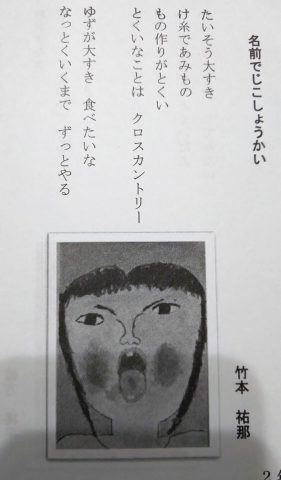 名前でじこしょうかい
竹本 祐那
たいそう大すき
け糸であみもの
もの作りがとくい
とくいなことは クロスカントリー
ゆずが大すき 食べたいな
なっとくいくまで ずっとやる
2